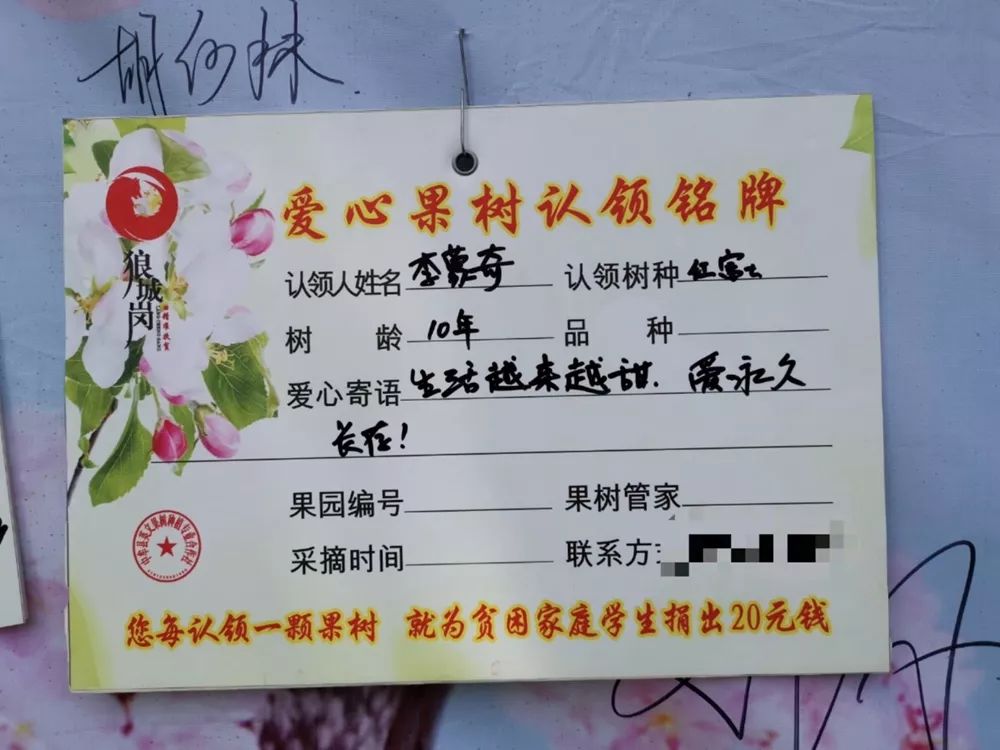 爱心果树认领铭牌
狼城岗
精准扶贫
认领人姓名 李蒙奇 认领树种 红富士
树 龄 10年 品 种
爱心寄语 生活越来越甜. 爱永久
长存!
果园编号 果树管家
采摘时间 联系方
您每认领一颗果树 就为贫困家庭学生捐出20元钱